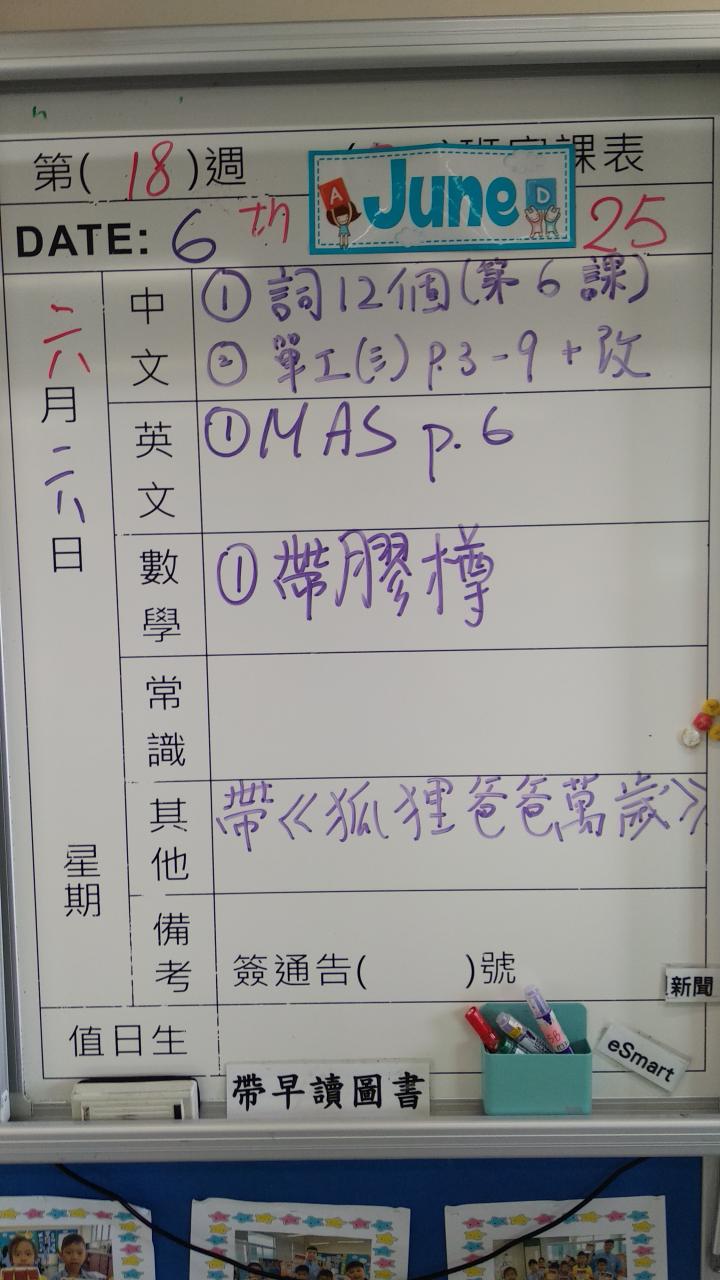 第( 18 )週
課表
DATE: 6 th June 25
A
D
中文
① 詞12個(第6課)
② 單工(三) p.3-9 + 改
英文
① MAS p.6
數學
① 帶膠樽
常識
其他
帶《狐狸爸爸萬歲》
備考
簽通告( )號
月
日
星期
值日生
新聞
eSmart
帶早讀圖書